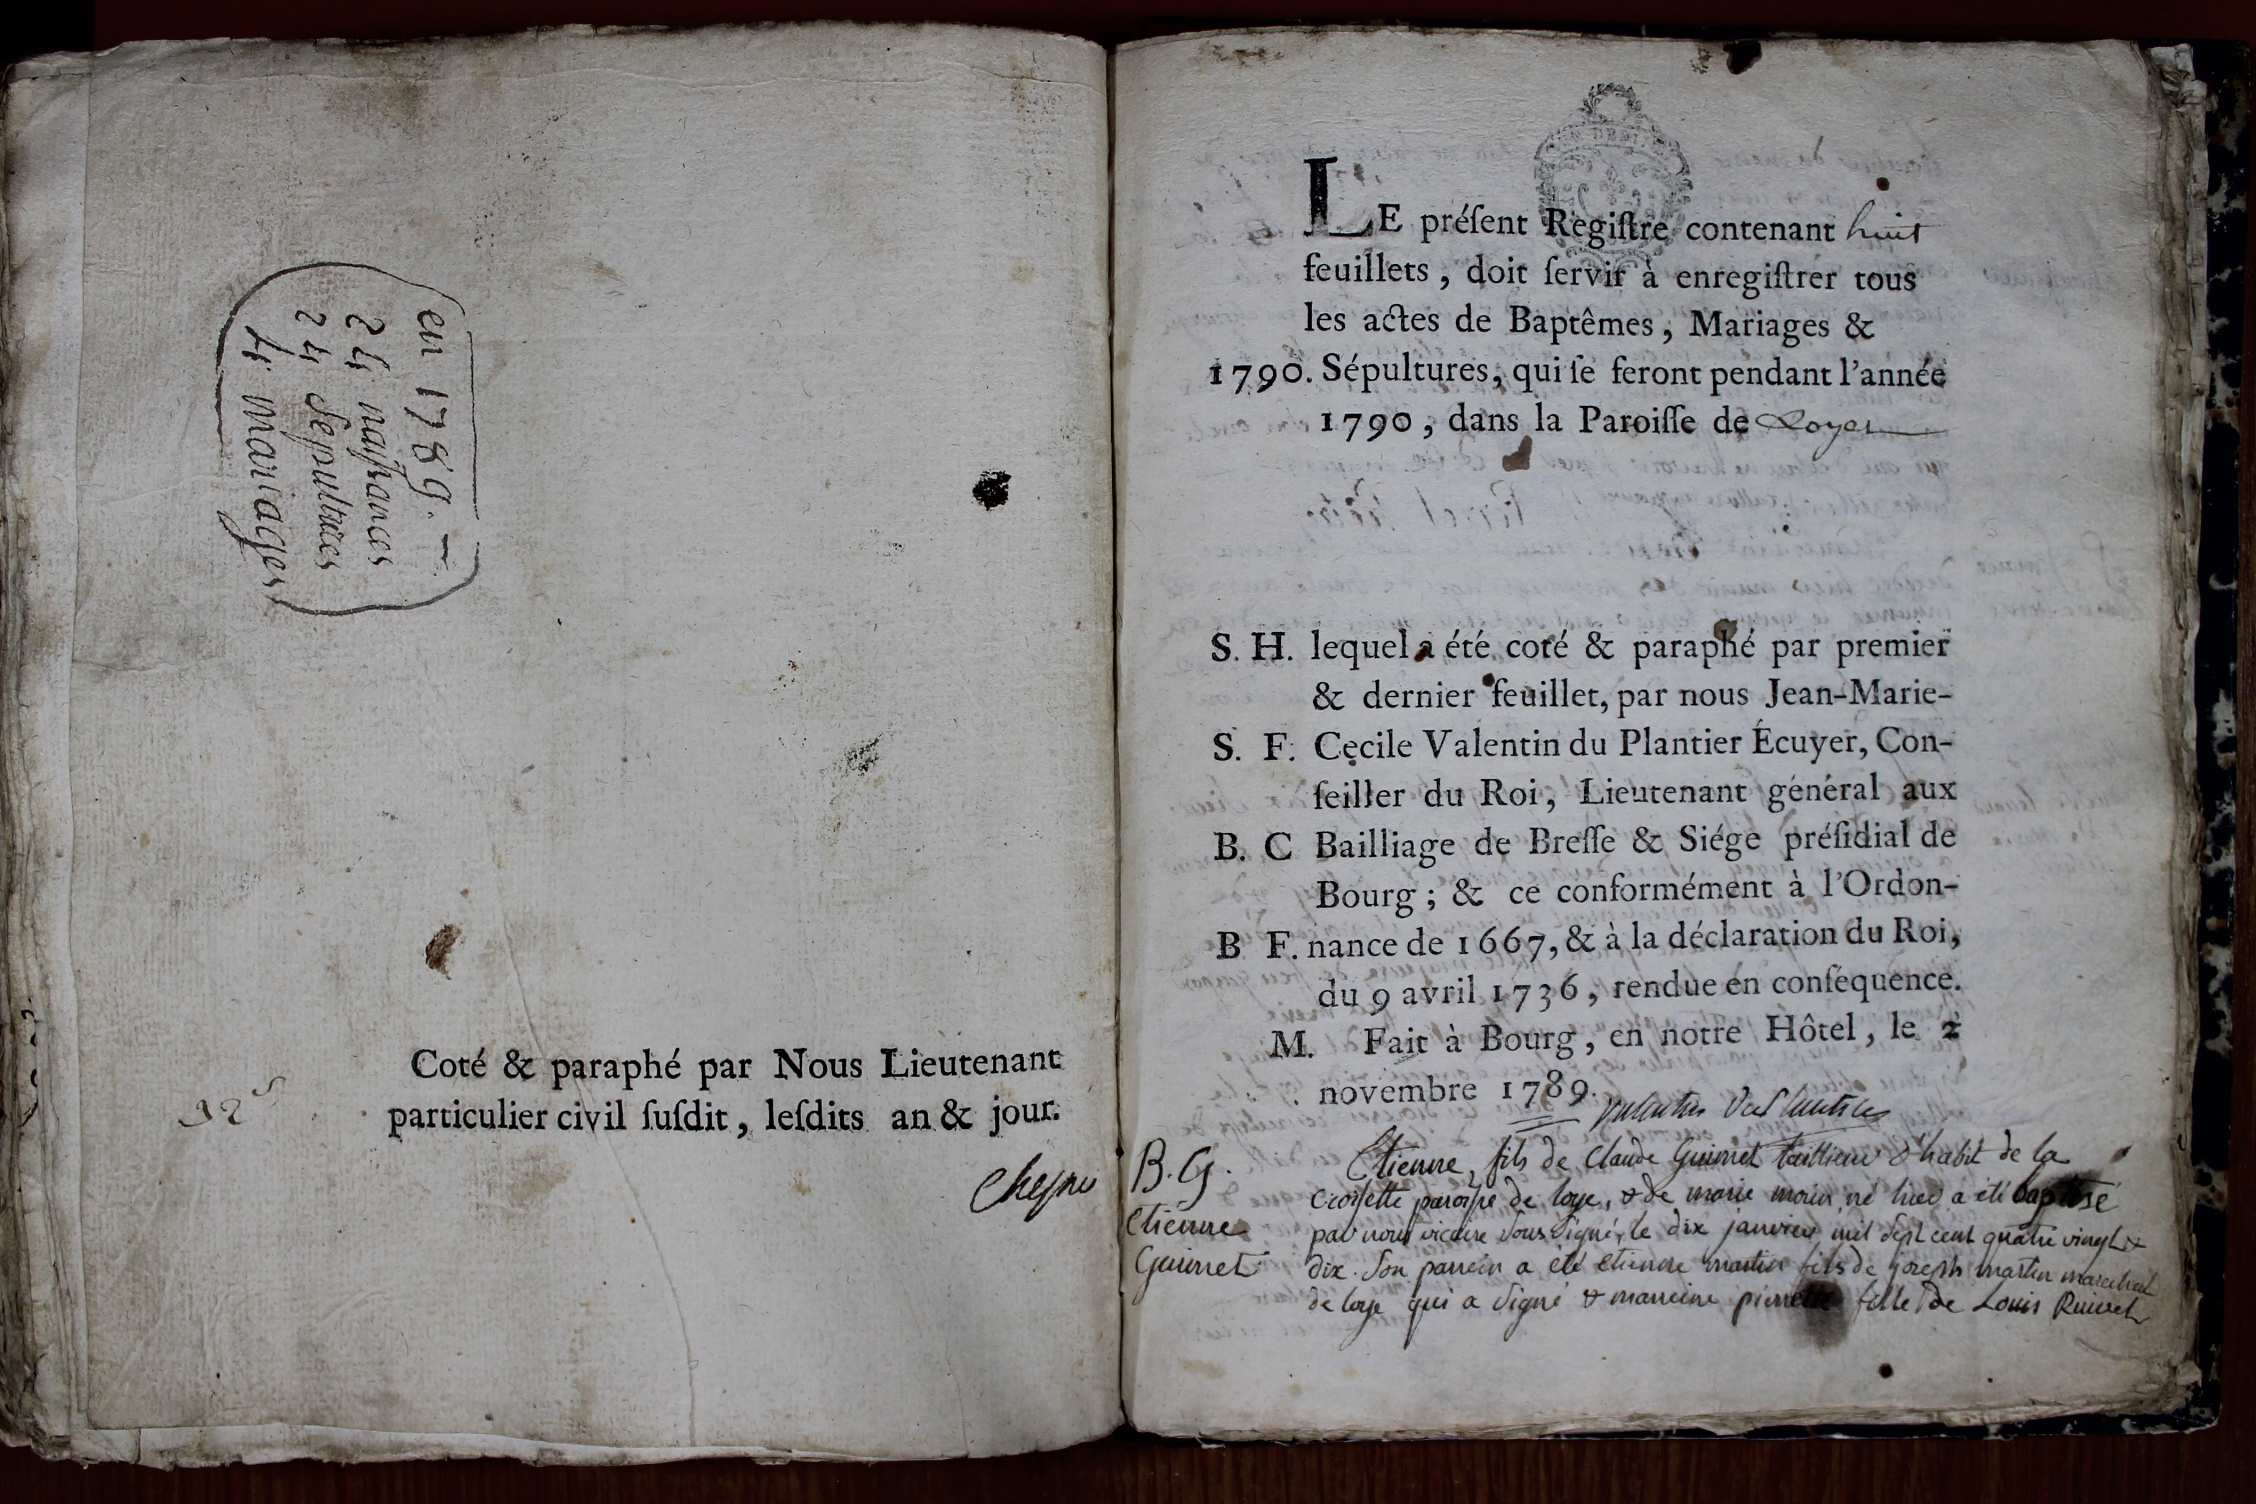 en 1789. —
24 naissances
24 Sepultures
4 mariages
Coté & paraphé par Nous Lieutenant
particulier civil ſuſdit, leſdits an & jour.
LE préſent Regiſtre contenant huit
feuillets, doit ſervir à enregiſtrer tous
les actes de Baptêmes, Mariages &
1790. Sépultures, qui ſe feront pendant l'année
1790, dans la Paroiſſe de Loyes
S. H. lequel a été coté & paraphé par premier
& dernier feuillet, par nous Jean-Marie-
S. F. Cecile Valentin du Plantier Écuyer, Con-
ſeiller du Roi, Lieutenant général aux
B. C Bailliage de Breſſe & Siége préſidial de
Bourg; & ce conformément à l'Ordon-
B F. nance de 1667, & à la déclaration du Roi,
du 9 avril 1736, rendue en conſéquence.
M. Fait à Bourg, en notre Hôtel, le 2
novembre 1789.
Valentin DuPlantier
B. G. Etienne, fils de Claude Guimet taillieur d'habit de la
croisette paroisse de loye, & de marie morin né hier a été baptisé
Etienne par nous vicaire sous signé, le dix janvier mil sept cent quatre vingt &
Guimet dix. Son parrein a été etienne martin fils de joseph martin marechal
de loye qui a signé & marreine pierrette fille de Louis